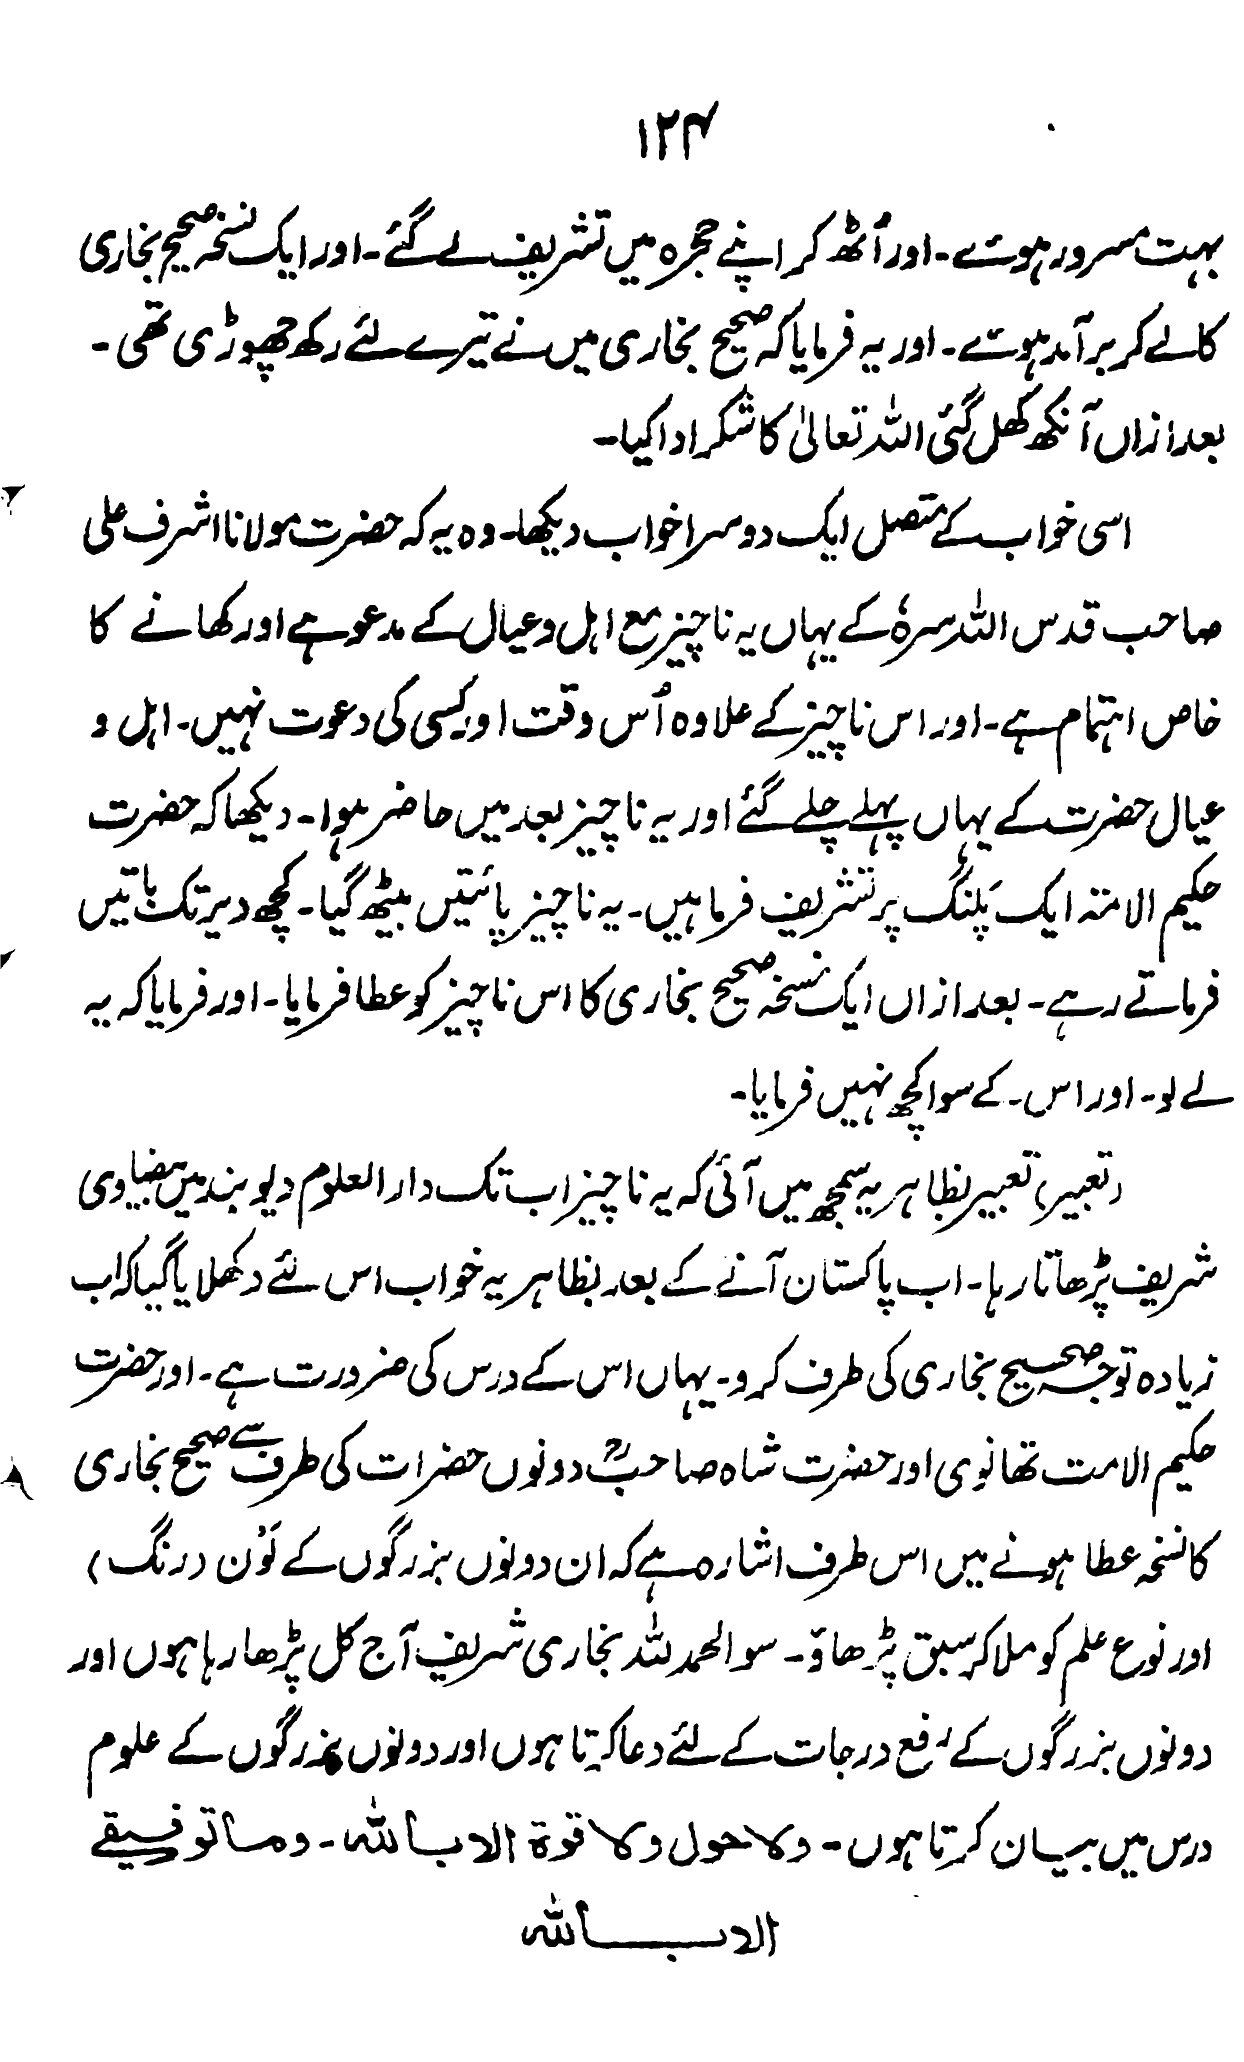 ۱۲۴
بہت مسرور ہوئے۔ اور اُٹھ کر اپنے حجرہ میں تشریف لے گئے۔ اور ایک نسخہ صحیح بخاری
کا لے کر برآمد ہوئے۔ اور یہ فرمایا کہ صحیح بخاری میں نے تیرے لئے رکھ چھوڑی تھی۔
بعد ازاں آنکھ کھل گئی اللہ تعالیٰ کا شکر ادا کیا۔
اسی خواب کے متصل ایک دوسرا خواب دیکھا۔ وہ یہ کہ حضرت مولانا اشرف علی
صاحب قدس اللہ سرہٗ کے یہاں یہ ناچیز مع اہل و عیال کے مدعو ہے اور کھانے کا
خاص اہتمام ہے۔ اور اس ناچیز کے علاوہ اُس وقت اور کسی کی دعوت نہیں۔ اہل و
عیال حضرت کے یہاں پہلے چلے گئے اور یہ ناچیز بعد میں حاضر ہوا۔ دیکھا کہ حضرت
حکیم الامتہ ایک پلنگ پر تشریف فرما ہیں۔ یہ ناچیز پائتیں بیٹھ گیا۔ کچھ دیر تک باتیں
فرماتے رہے۔ بعد ازاں ایک نسخہ صحیح بخاری کا اس ناچیز کو عطا فرمایا۔ اور فرمایا کہ یہ
لے لو۔ اور اس۔ کے سوا کچھ نہیں فرمایا۔
(تعبیر) تعبیر بظاہر یہ سمجھ میں آئی کہ یہ ناچیز اب تک دارالعلوم دیوبند میں بیضاوی
شریف پڑھاتا رہا۔ اب پاکستان آنے کے بعد بظاہر یہ خواب اس لئے دکھلایا گیا کہ اب
زیادہ توجہ صحیح بخاری کی طرف کرو۔ یہاں اس کے درس کی ضرورت ہے۔ اور حضرت
حکیم الامت تھانوی اور حضرت شاہ صاحبؒ دونوں حضرات کی طرف سے صحیح بخاری
کا نسخہ عطا ہونے میں اس طرف اشارہ ہے کہ ان دونوں بزرگوں کے لَوْن (رنگ)
اور نوع علم کو ملا کر سبق پڑھاؤ۔ سو الحمد للہ بخاری شریف آج کل پڑھا رہا ہوں اور
دونوں بزرگوں کے رفع درجات کے لئے دعا کرتا ہوں اور دونوں بزرگوں کے علوم
درس میں بیان کرتا ہوں۔ ولا حول ولا قوة الا بالله۔ وما توفیقے
الا بالله